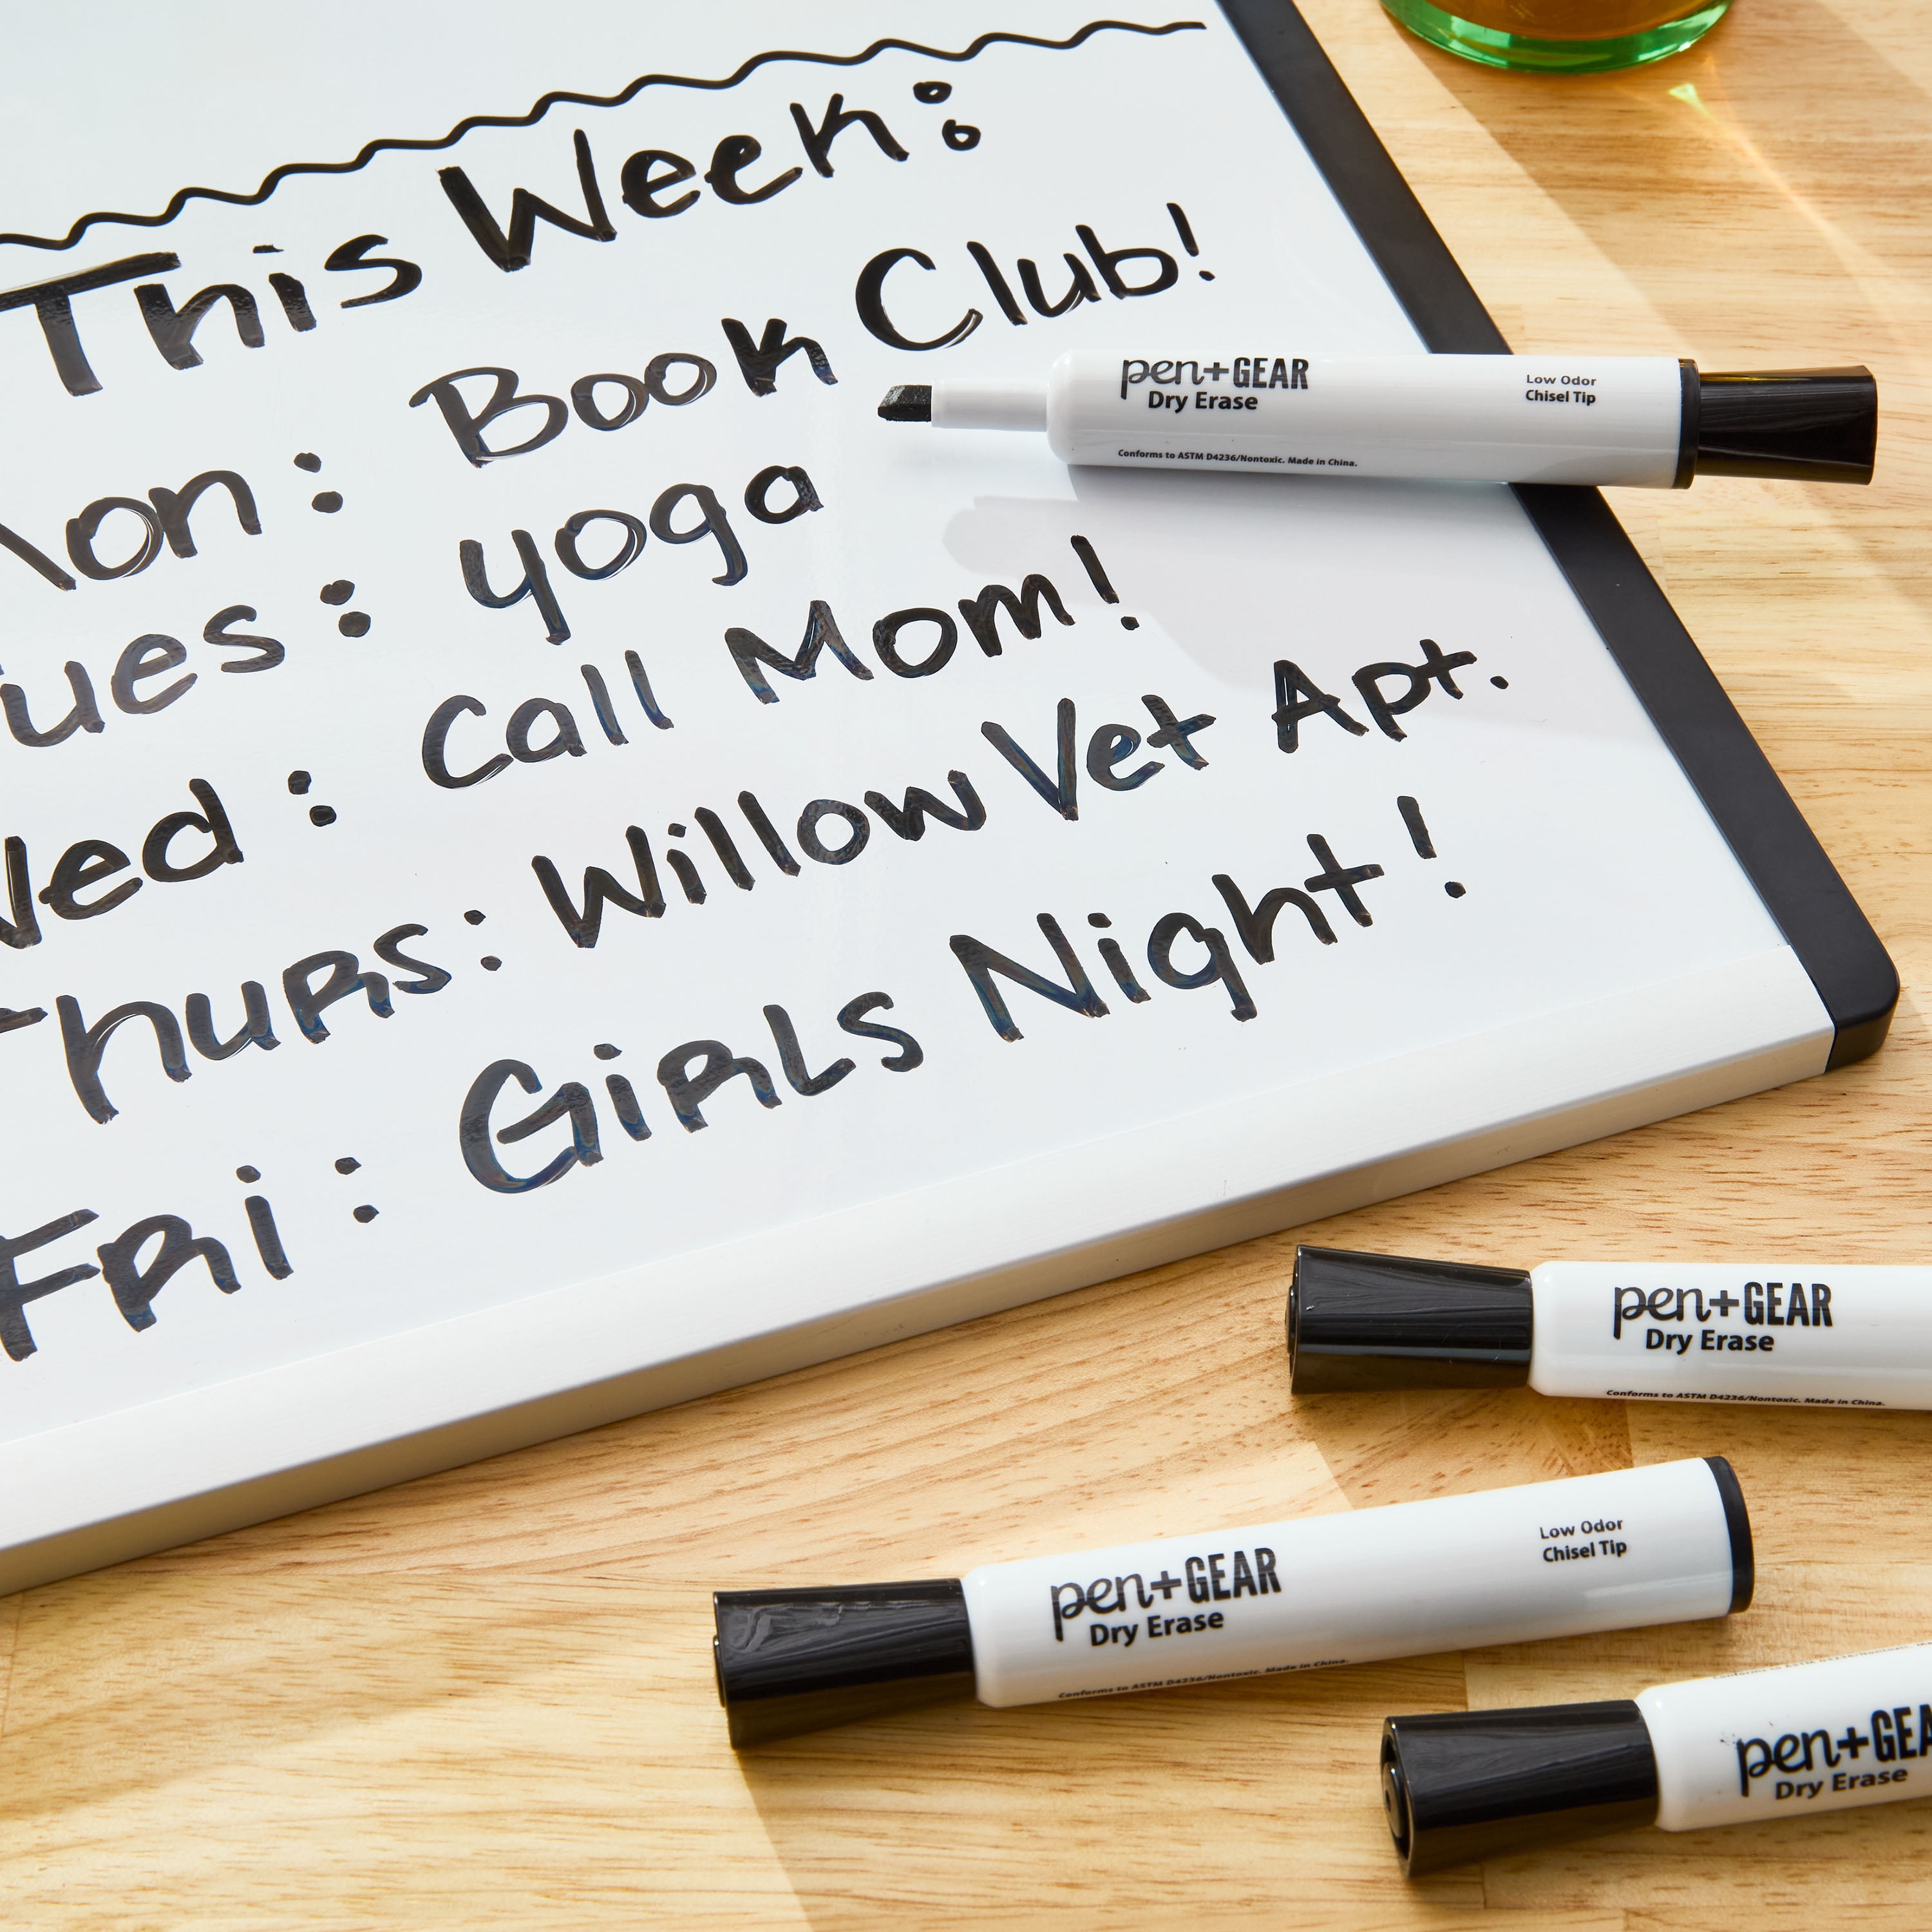 This Week:
Mon: Book Club!
Tues: yoga
Wed: Call Mom!
Thurs: Willow Vet Apt.
Fri: Girls Night!
pen+GEAR
Dry Erase
Low Odor
Chisel Tip
Conforms to ASTM D4236/Nontoxic. Made in China.
pen+GEAR
Dry Erase
Conforms to ASTM D4236/Nontoxic. Made in China.
pen+GEAR
Dry Erase
Low Odor
Chisel Tip
Conforms to ASTM D4236/Nontoxic. Made in China.
pen+GEA
Dry Erase